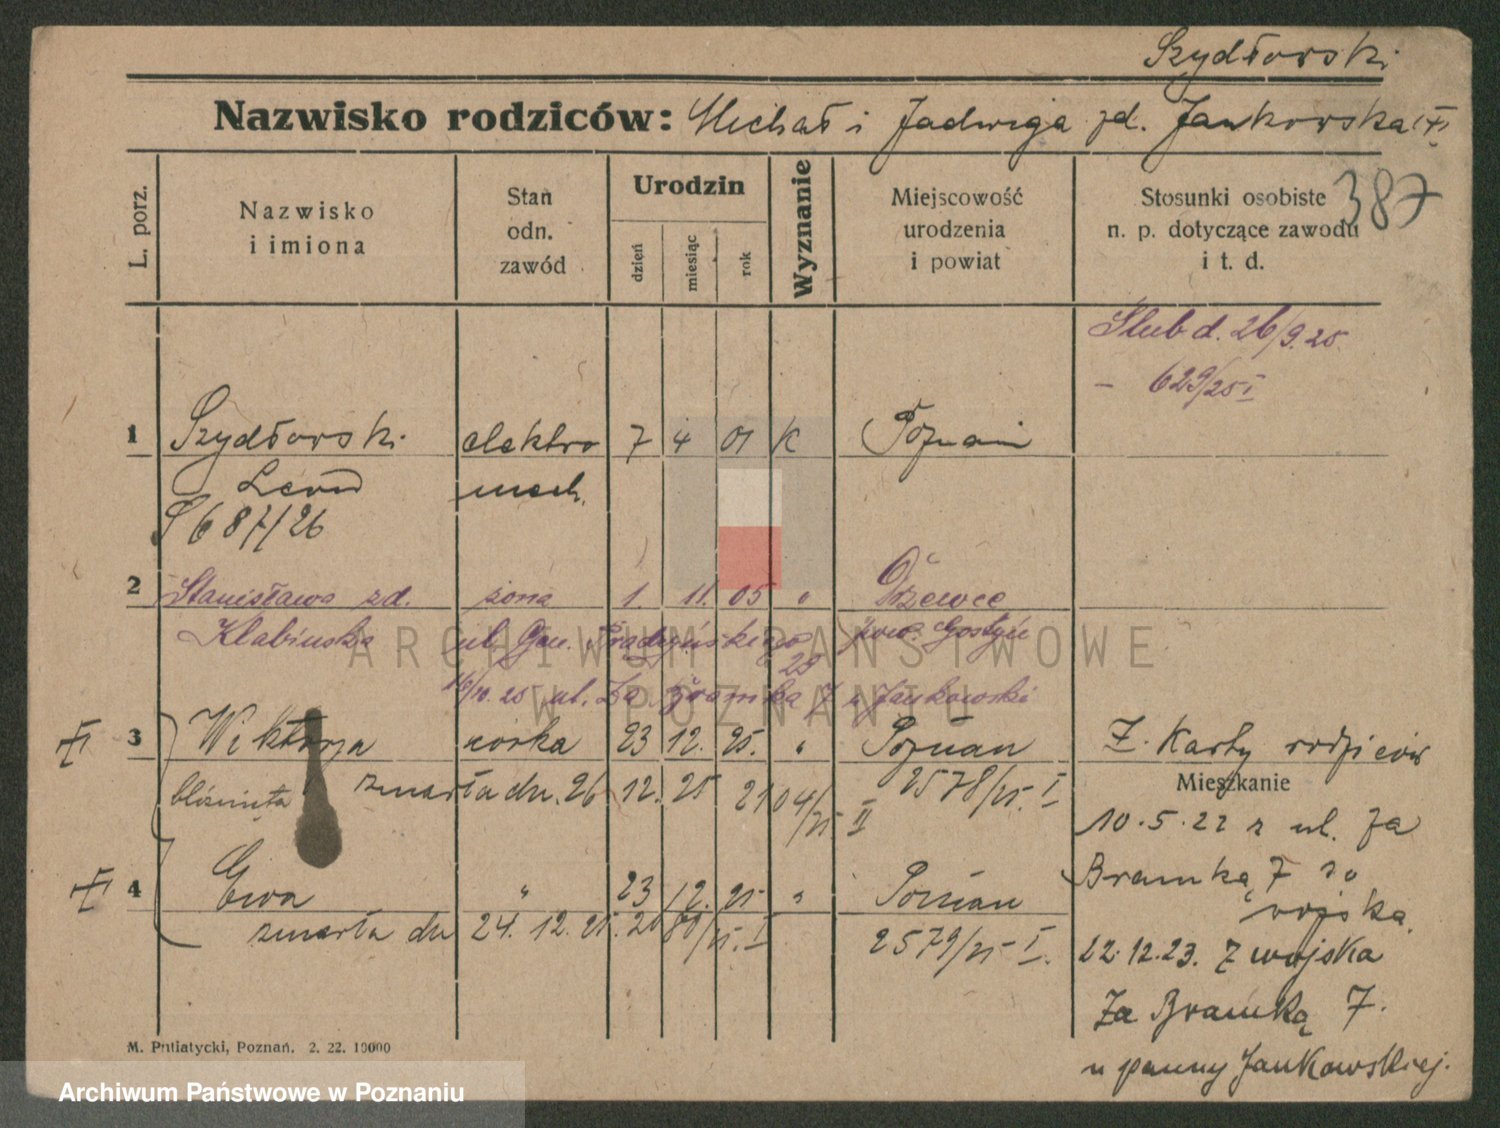 Szydłowski
Nazwisko rodziców: Michał i Jadwiga zd. Jankowska
387
L. porz.
Nazwisko
i imiona
Stan
odn.
zawód
Urodzin
dzień
miesiąc
rok
Wyznanie
Miejscowość
urodzenia
i powiat
Stosunki osobiste
n. p. dotyczące zawodu
i t. d.
Ślub d. 26/9.25
- 629/25 I
1 Szydłowski elektro 7 4 01 K Poznań
Leon mech.
S 687/26
2 Stanisława zd. żona 1. 11. 05 " Drzewce
Klabińska ul. Gen. Prądzyńskiego pow. Gostyń
29
16/10.25 ul. Za Bramką 7 z Jankowski
3 Wiktorja córka 23 12. 25. " Poznań Z. Karty rodziców
bliźnięta zmarła dn. 26 12. 25 2104/25 II 2578/25. I
Mieszkanie
10.5.22 z ul. Za
Bramką 7 do
wojska.
4 Ewa " 23 12. 25 " Poznań
zmarła dn 24. 12. 25. 2080/25. I 2579/25 I.
22.12.23. Z wojska
Za Bramką 7.
u panny Jankowskiej.
M. Putiatycki, Poznań. 2. 22. 10000
ARCHIWUM PAŃSTWOWE
W POZNANIU
Archiwum Państwowe w Poznaniu